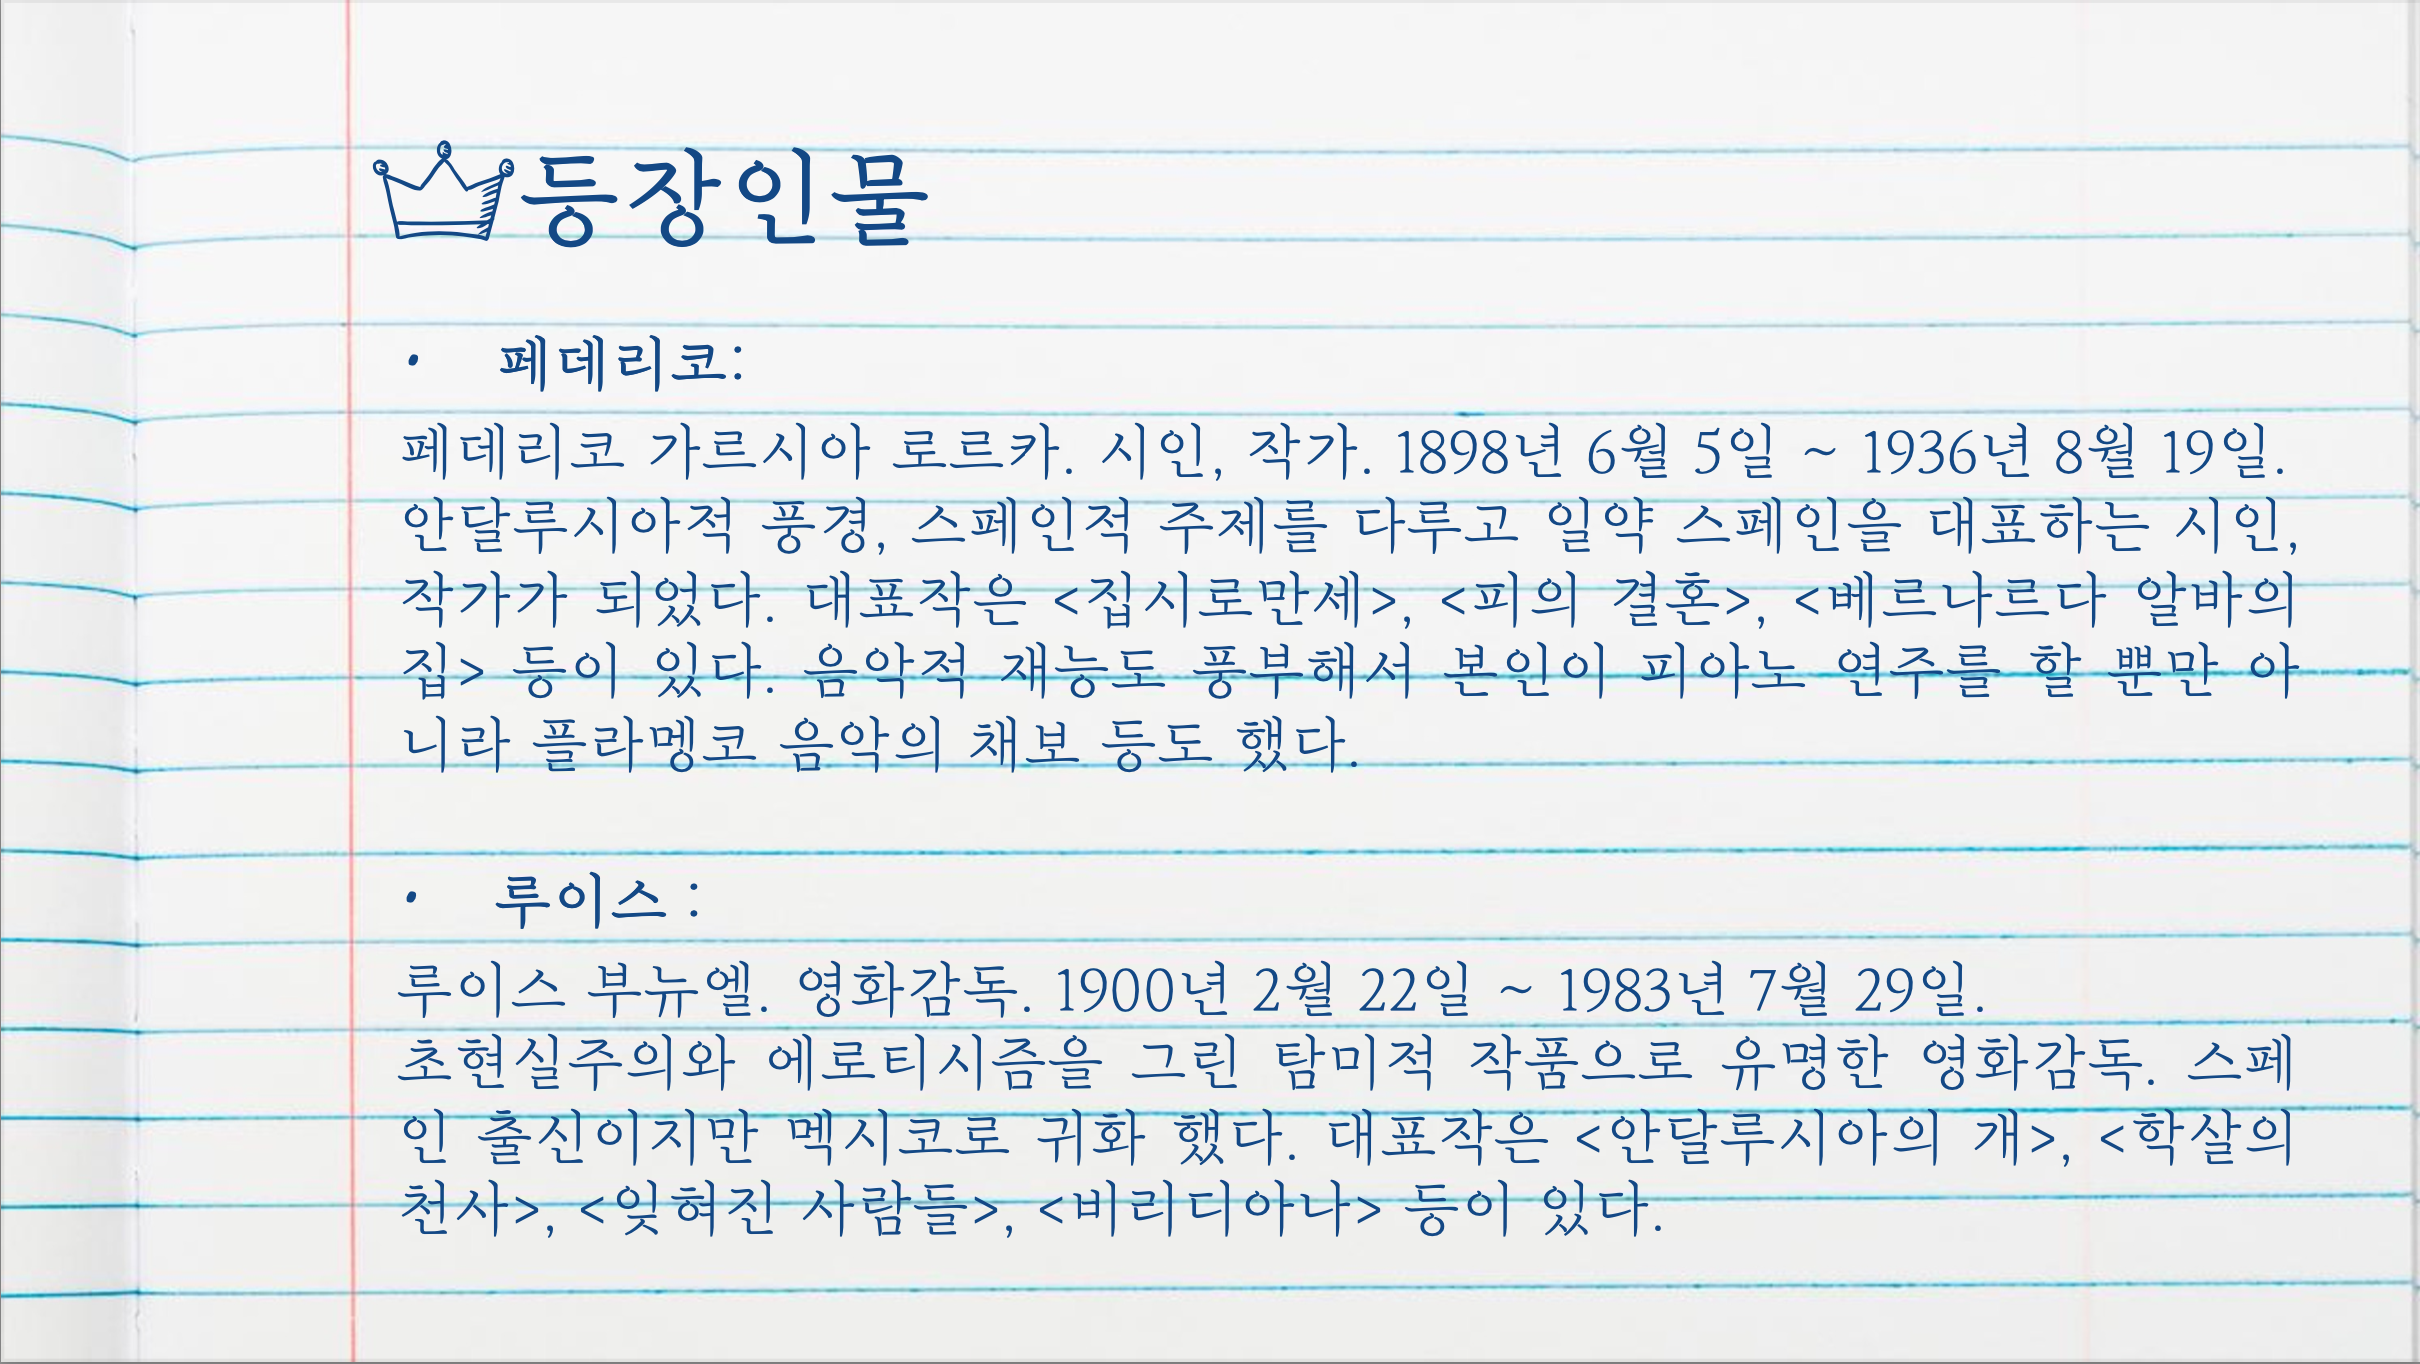 등장인물
• 페데리코:
페데리코 가르시아 로르카. 시인, 작가. 1898년 6월 5일 ~ 1936년 8월 19일.
안달루시아적 풍경, 스페인적 주제를 다루고 일약 스페인을 대표하는 시인,
작가가 되었다. 대표작은 <집시로만세>, <피의 결혼>, <베르나르다 알바의
집> 등이 있다. 음악적 재능도 풍부해서 본인이 피아노 연주를 할 뿐만 아
니라 플라멩코 음악의 채보 등도 했다.
• 루이스 :
루이스 부뉴엘. 영화감독. 1900년 2월 22일 ~ 1983년 7월 29일.
초현실주의와 에로티시즘을 그린 탐미적 작품으로 유명한 영화감독. 스페
인 출신이지만 멕시코로 귀화 했다. 대표작은 <안달루시아의 개>, <학살의
천사>, <잊혀진 사람들>, <비리디아나> 등이 있다.